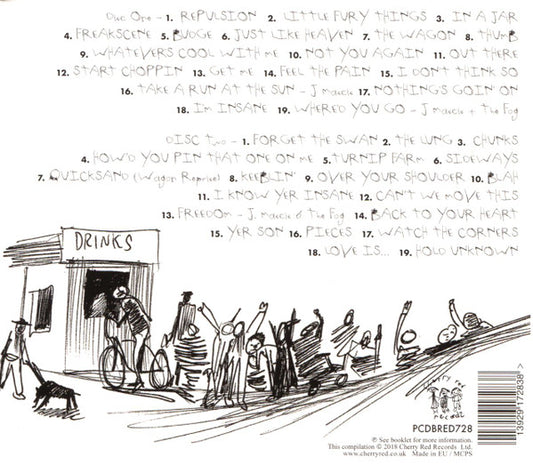 Disc One – 1. REPULSION 2. LITTLE FURY THINGS 3. IN A JAR
4. FREAKSCENE 5. BUDGE 6. JUST LIKE HEAVEN 7. THE WAGON 8. THUMB
9. WHATEVERS COOL WITH ME 10. NOT YOU AGAIN 11. OUT THERE
12. START CHOPPIN 13. GET ME 14. FEEL THE PAIN 15. I DON'T THINK SO
16. TAKE A RUN AT THE SUN – J Mascis 17. NOTHING'S GOIN ON
18. I'm INSANE 19. WHERE'D YOU GO – J Mascis + The Fog
DISC Two – 1. FORGET THE SWAN 2. THE LUNG 3. CHUNKS
4. HOW'D YOU PIN THAT ONE ON ME 5. TURNIP FARM 6. SIDEWAYS
7. QUICKSAND (Wagon Reprise) 8. KEEBLIN' 9. OVER YOUR SHOULDER 10. BLAH
11. I KNOW YER INSANE 12. CAN'T WE MOVE THIS
13. FREEDOM – J. Mascis & The Fog 14. BACK TO YOUR HEART
15. YER SON 16. PIECES 17. WATCH THE CORNERS
18. LOVE IS... 19. HOLD UNKNOWN
DRINKS
cherry red
records
PCDBRED728
13929"172838">
℗ See booklet for more information.
This compilation © 2018 Cherry Red Records Ltd.
www.cherryred.co.uk Made in EU / MCPS